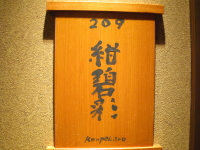 209
紺碧彩